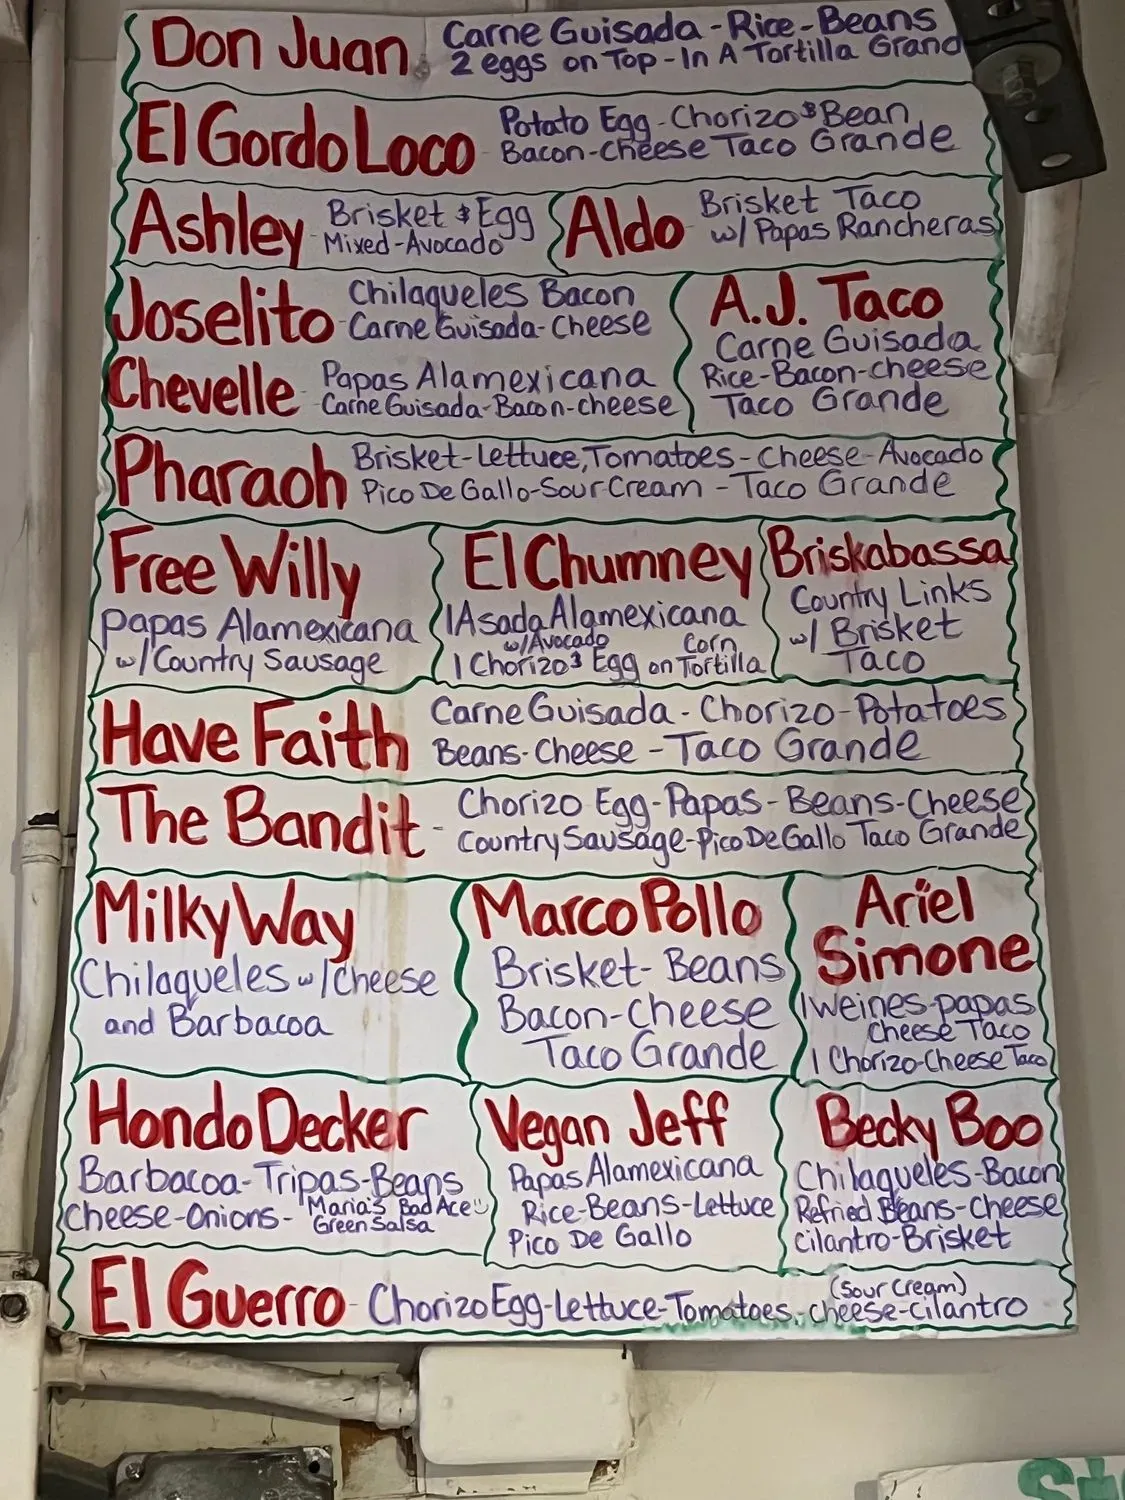 Don Juan
Carne Guisada - Rice - Beans
2 eggs on Top - In A Tortilla Grand
El Gordo Loco
Potato Egg - Chorizo & Bean
Bacon-Cheese Taco Grande
Ashley
Brisket & Egg
Mixed-Avocado
Aldo
Brisket Taco
w/ Papas Rancheras
Joselito
Chilaqueles Bacon
Carne Guisada-Cheese
Chevelle
Papas Alamexicana
Carne Guisada-Bacon-cheese
A.J. Taco
Carne Guisada
Rice-Bacon-cheese
Taco Grande
Pharaoh
Brisket-Lettuce, Tomatoes-Cheese-Avocado
Pico De Gallo-Sour Cream - Taco Grande
Free Willy
Papas Alamexicana
w/ Country Sausage
El Chumney
1 Asada Alamexicana
w/ Avocado
1 Chorizo & Egg on Corn Tortilla
Briskabassa
Country Links
w/ Brisket
Taco
Have Faith
Carne Guisada - Chorizo-Potatoes
Beans-Cheese - Taco Grande
The Bandit -
Chorizo Egg-Papas-Beans-Cheese
Country Sausage-Pico De Gallo Taco Grande
Milky Way
Chilaqueles w/ Cheese
and Barbacoa
Marco Pollo
Brisket-Beans
Bacon-Cheese
Taco Grande
Ariel
Simone
1 Weines-papas
Cheese Taco
1 Chorizo-Cheese Taco
Hondo Decker
Barbacoa-Tripas-Beans
Cheese-Onions- Maria's Bad Ace
Green Salsa
Vegan Jeff
Papas Alamexicana
Rice-Beans-Lettuce
Pico De Gallo
Becky Boo
Chilaqueles-Bacon
Refried Beans-Cheese
Cilantro-Brisket
El Guerro -
(Sour Cream)
Chorizo Egg-Lettuce-Tomatoes-Cheese-Cilantro